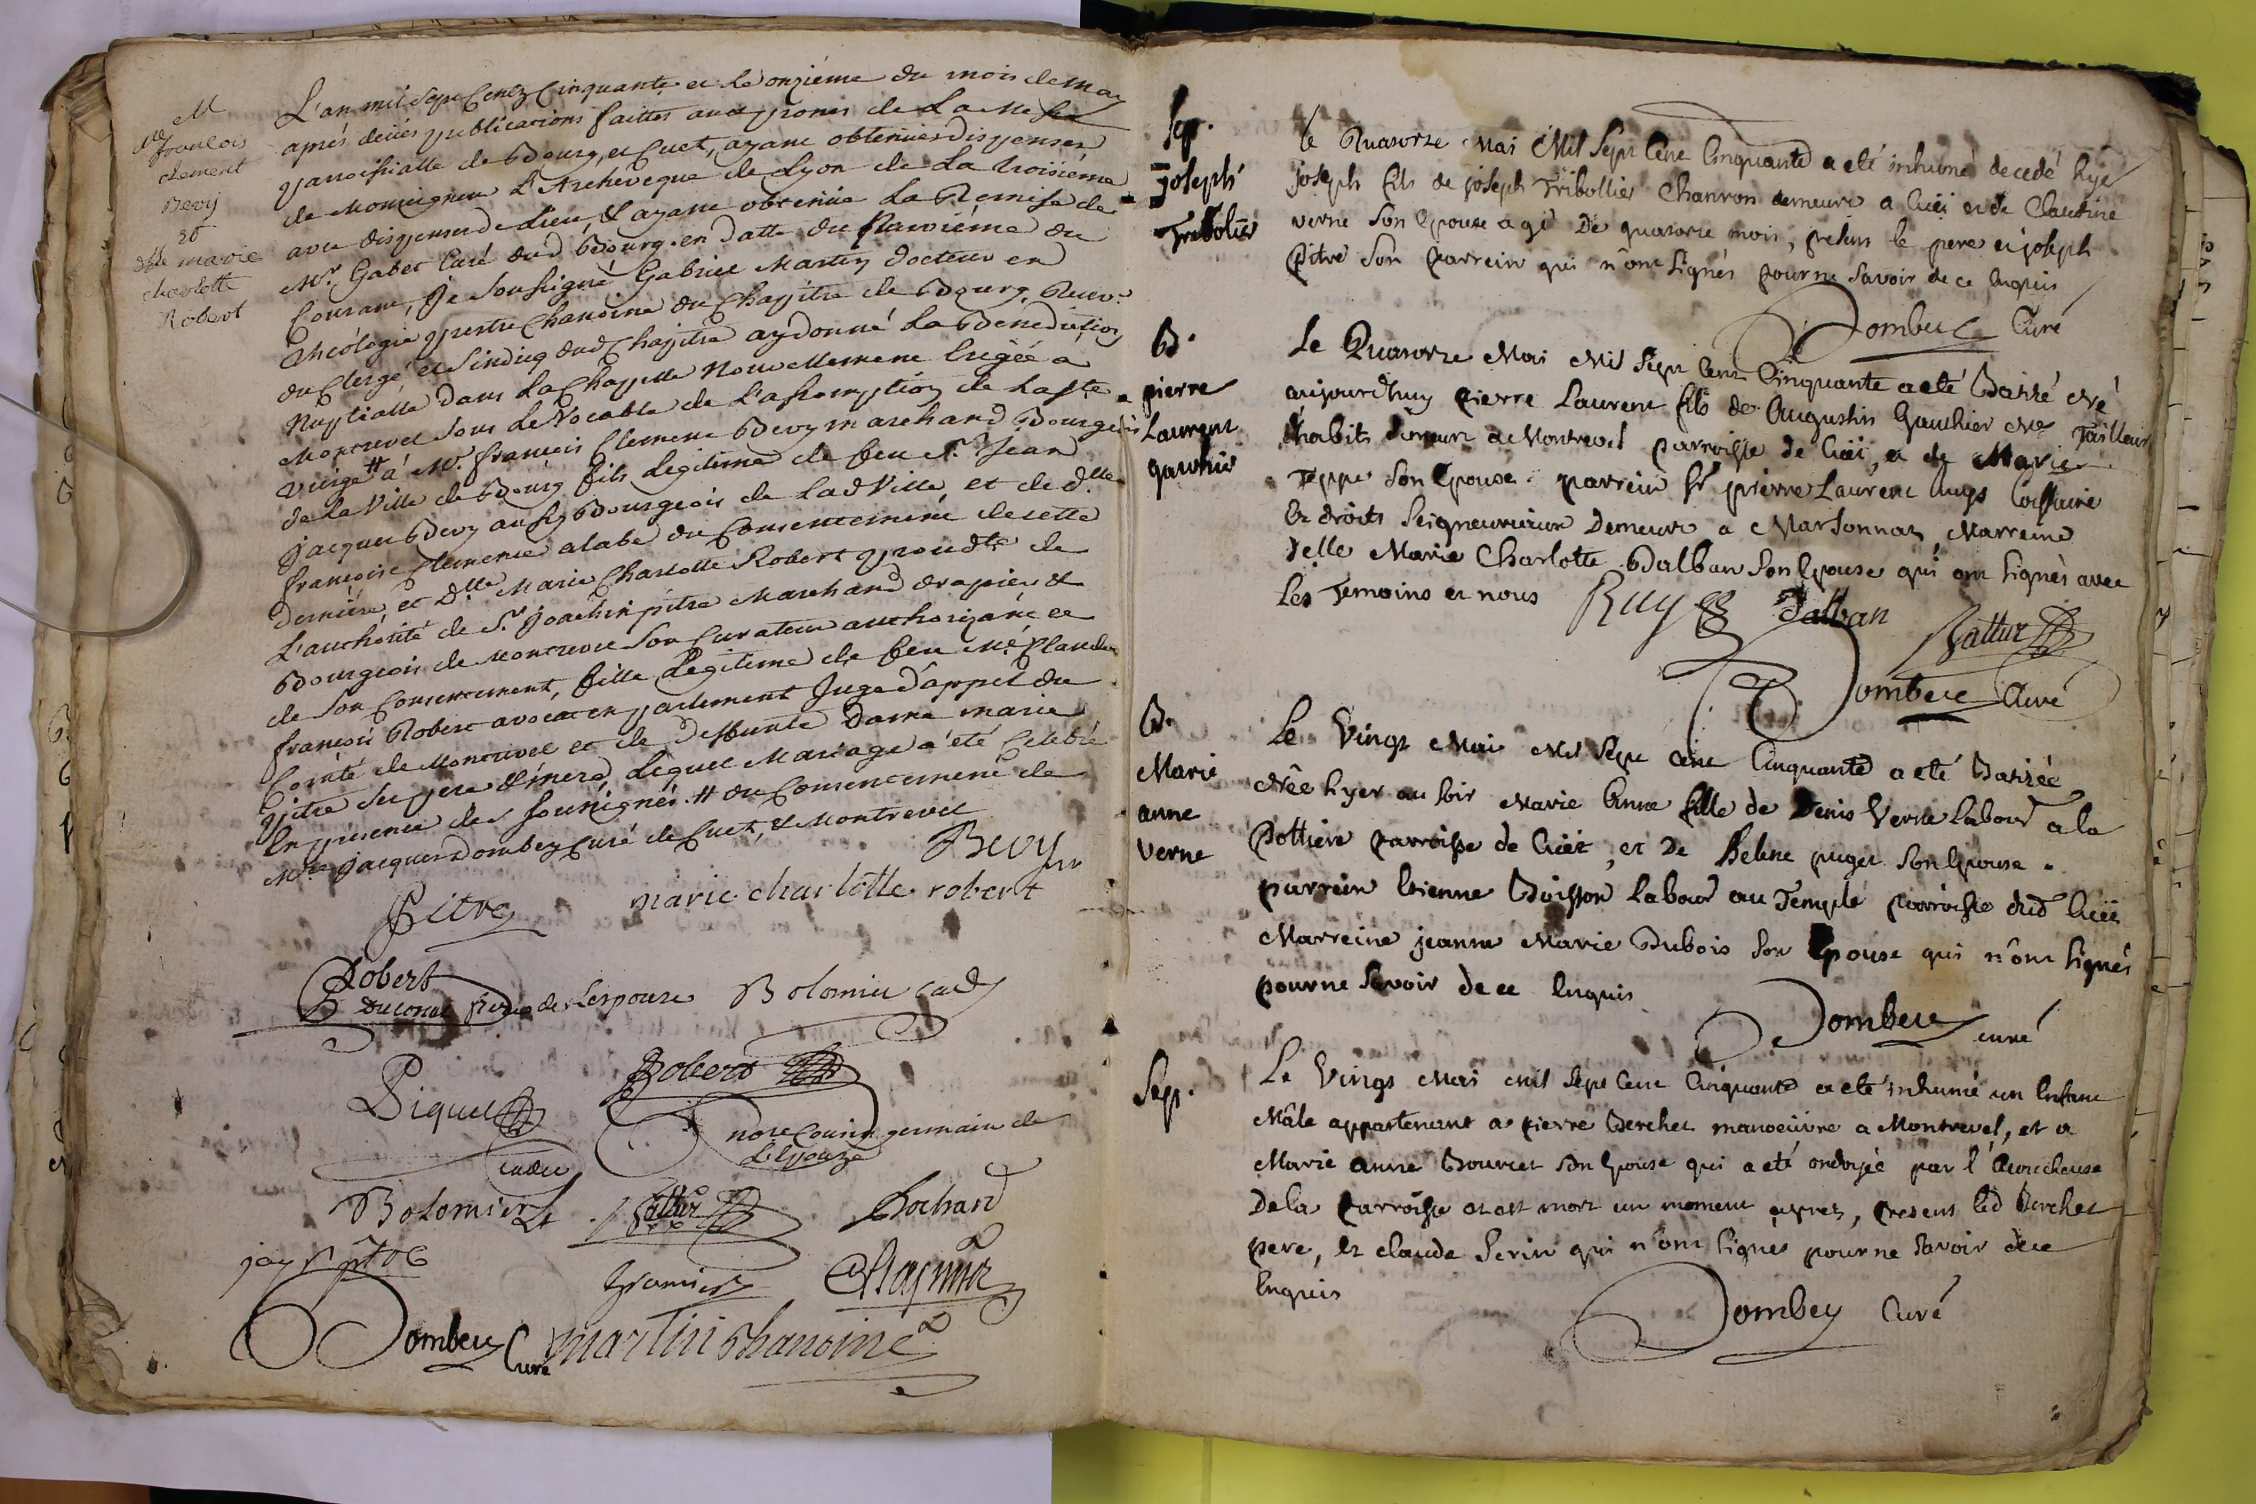 M
Mr francois
clement
Bevy
et
dlle marie
charlotte
Robert
L'an mil sept Cents Cinquante et Le onzieme du mois de may
aprés deües publications faittes aux prones de La Messe
parroissialle de Bourg, et Cuet, ayant obtenües dispenses
de Monseigneur L'Archeveque de Lyon de La troisieme
avec dispense de Lieu, & ayant obtenüe La Remise de
Mr. Gabet Curé dud Bourg en datte du Neuvième du
Courant, Je Soussigné Gabriel Martin docteur en
Théologie prestre Chanoine du Chapitre de Bourg, Recev.r
du Clergé, et Sindicq dud Chapitre ay donné La Bénédiction
Nuptialle dans La Chappelle Nouvellement Erigée à
Montrevel Sous Le Vocable de L'assomption de La Ste
Vierge # à Mr. francois Clement Bevy marchand Bourgeois
de La Ville de Bourg fils Legitime de feu Sr. Jean
Jacques Bevy aussy Bourgeois de Lad Ville et de dlle
francoise Clemence alabe du Consentement de cette
derniere, et Dlle Marie Charlotte Robert procedte de
L'authorité de Sr. Joachin pitre Marchand drapier &
Bourgeois de Montrevel Son Curateur authorizant et
de Son Consentement, fille Legitime de feu Me Claude
francois Robert avocat en parlement Juge d'appel du
Comté de Montrevel et de Deffunte Dame marie
pitre Ses pere & mere, Lequel Mariage a été Celebré
En presence des Soussignés # du Consentement de
Mre Jacques Dombey Curé de Cuet, & Montrevel
Bevy
Pitre marie charlotte robert
Robert
Duconat frere de Lespouse Bolomier cadet
Piquet Robert
cadet notre Cousin germain de
L'Epouze
Bolomier Lt Vattur Bochard
jay pitre
Dombey Curé martin Chanoine
Sep.
Joseph
Tribolier
Le Quatorze Mai Mil Sept Cent Cinquante a eté inhumé decedé hyer
joseph fils de joseph Tribollier Chanron demeurt a Cüet et de Claudine
verne Son Epouse agé De quatorze mois, presens le pere et joseph
Pitre Son parrein qui n'ont Signés pour ne Savoir de ce Enquis
Dombey Curé
B.
pierre
Laurent
gauthier
Le Quatorze Mai Mil Sept Cent Cinquante a eté Batizé né
aujourdhuy pierre Laurent fils de Augustin Gauthier Me Tailleur
d'habits demeurt a Montrevel parroisse de Cüet, et de Marie
Teppe Son Epouse. parrein Sr pierre Laurent Ruys Comissaire
Ez droits Seigneuriaux Demeurt a Marsonnaz, Marreine
Delle Marie Charlotte Dalban Son Epouse qui ont Signés avec
Les Temoins et nous Ruys Dalban
Vattur
Dombey Curé
B.
Marie
anne
verne
Le Vingt Mai Mil Sept Cent Cinquante a eté Batizée
née hyer au Soir Marie Anne fille de Denis Verne Labour a la
Pottiere parroisse de Cüet, et De Helene puget Son Epouse.
parrein Etienne Buisson Labour au Temple parroisse dud Cüet
Marreine jeanne Marie Dubois Son Epouse qui n'ont Signés
pour ne Savoir de ce Enquis
Dombey curé
Sep.
Le Vingt Mai Mil Sept Cent Cinquante a eté inhumé un Enfant
Mâle appartenant a pierre Berchet manoeüvre a Montrevel, et a
Marie Anne Bourcet Son Epouse qui a eté ondoyé par l'accoucheuse
De la parroisse et est mort un moment apres, presens led Berchet
pere, et claude Perin qui n'ont Signés pour ne Savoir de ce
Enquis
Dombey Curé